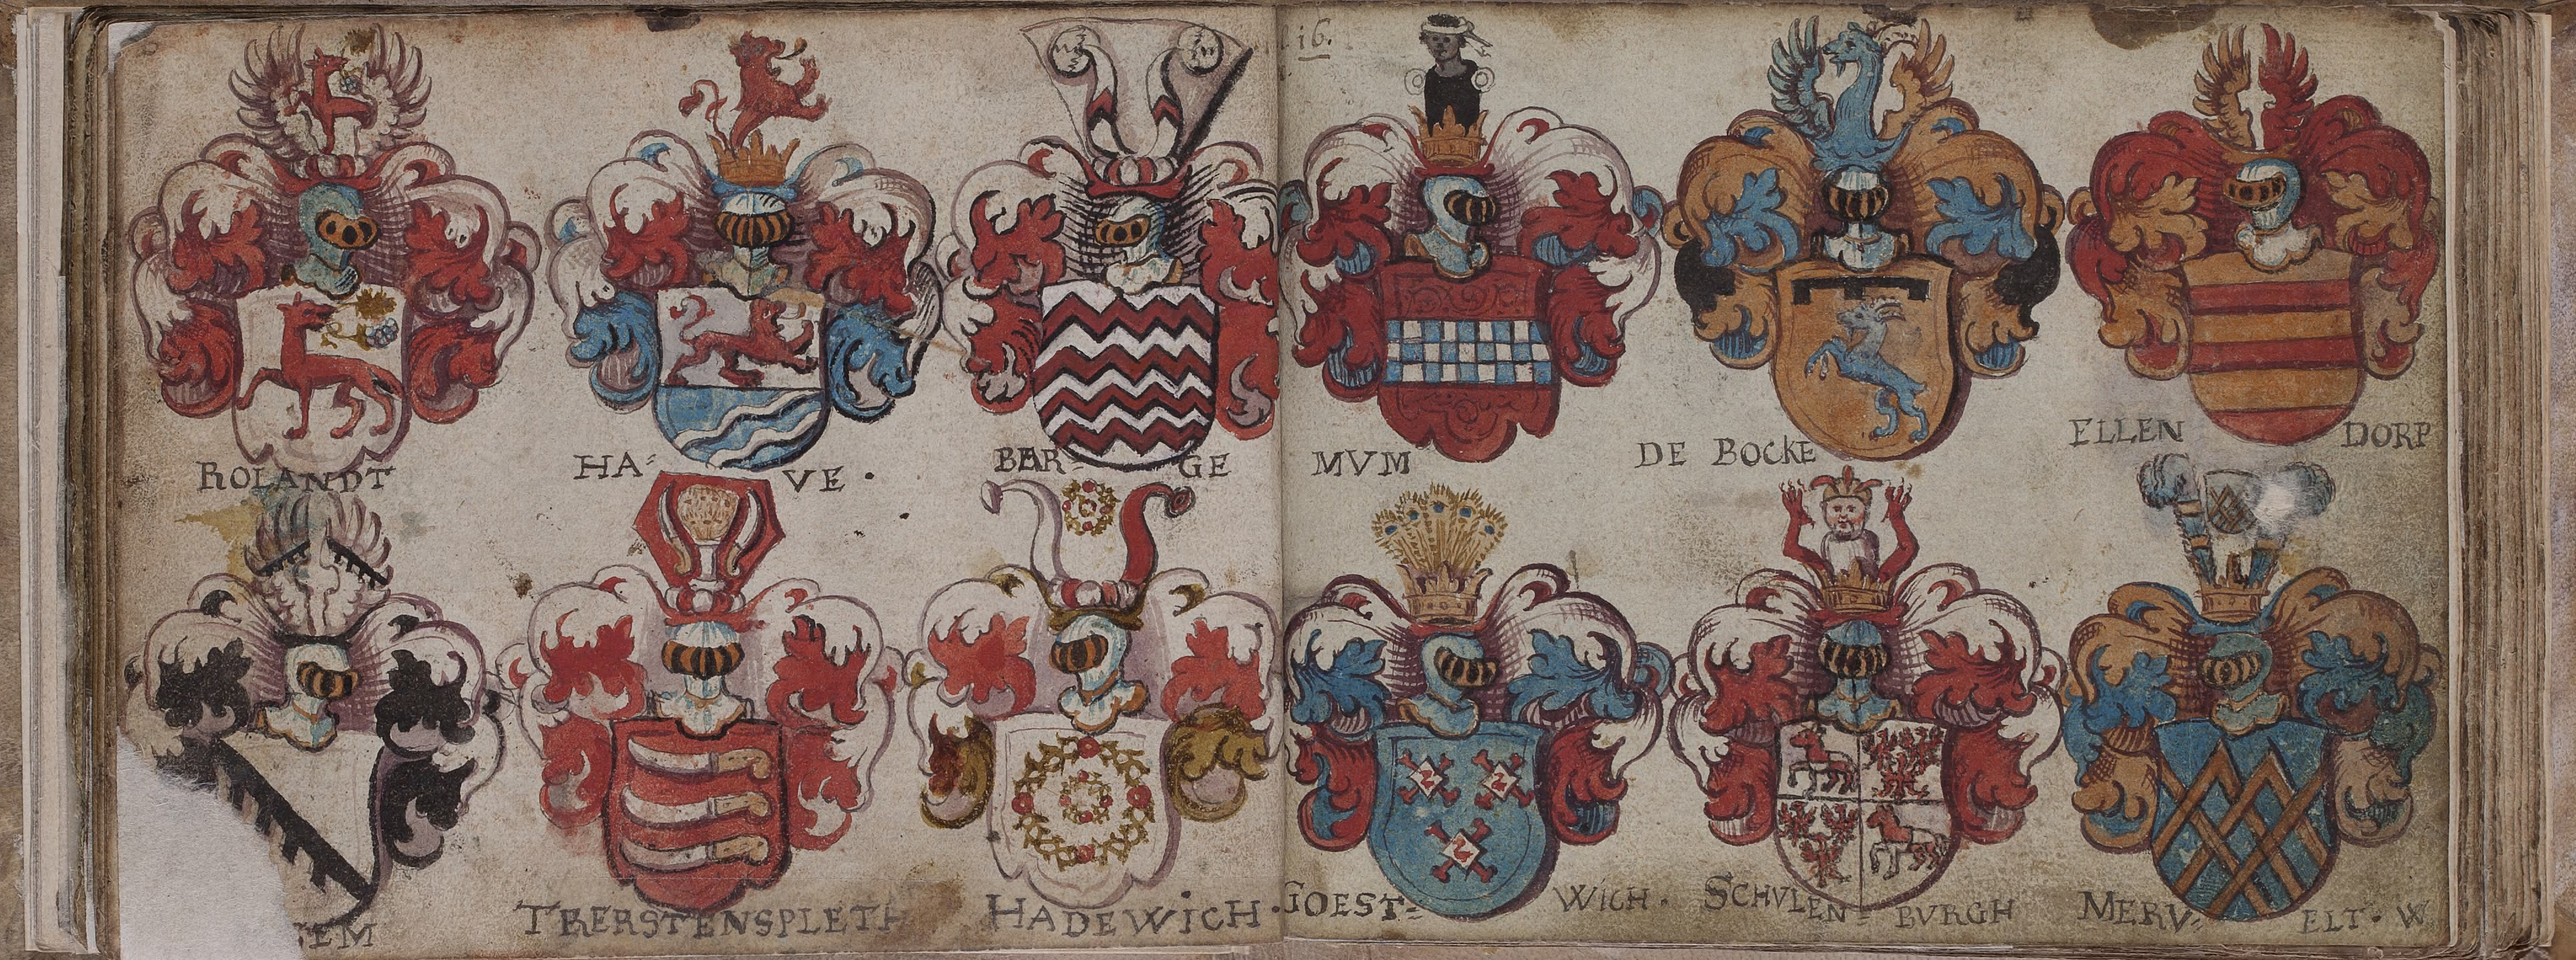 16.
ROLANDT
HA= VE.
BAR= GE
MVM
DE BOCKE
ELLEN DORP
EM
TRERSTENSPLETH
HADEWICH.
GOEST= WICH.
SCHVLEN= BVRGH
MERV= ELT. W